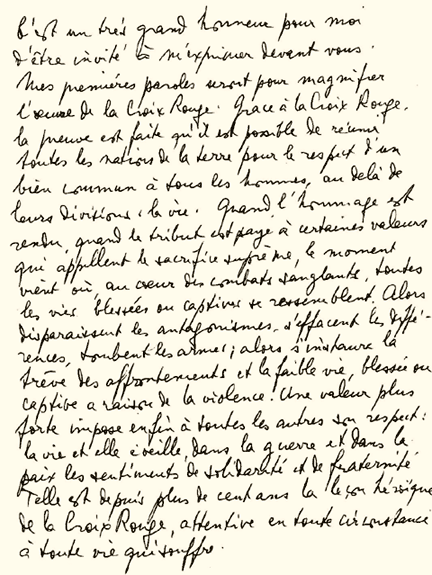 C'est un très grand honneur pour moi
d'être invité à m'exprimer devant vous.
Mes premières paroles seront pour magnifier
l'œuvre de la Croix Rouge. Grâce à la Croix Rouge,
la preuve est faite qu'il est possible de réunir
toutes les nations de la terre pour le respect d'un
bien commun à tous les hommes, au delà de
leurs divisions : la vie. Quand l'hommage est
rendu, quand le tribut est payé à certaines valeurs
qui appellent le sacrifice suprême, le moment
vient où, au cœur des combats sanglants, toutes
les vies blessées ou captives se ressemblent. Alors
disparaissent les antagonismes, s'effacent les diffé-
rences, tombent les armes ; alors s'instaure la
trêve des affrontements et la faible vie, blessée ou
captive a raison de la violence. Une valeur plus
forte impose enfin à toutes les autres son respect :
la vie et elle éveille, dans la guerre et dans la
paix les sentiments de solidarité et de fraternité
Telle est depuis plus de cent ans la leçon héroïque
de la Croix Rouge, attentive en toute circonstance
à toute vie qui souffre.